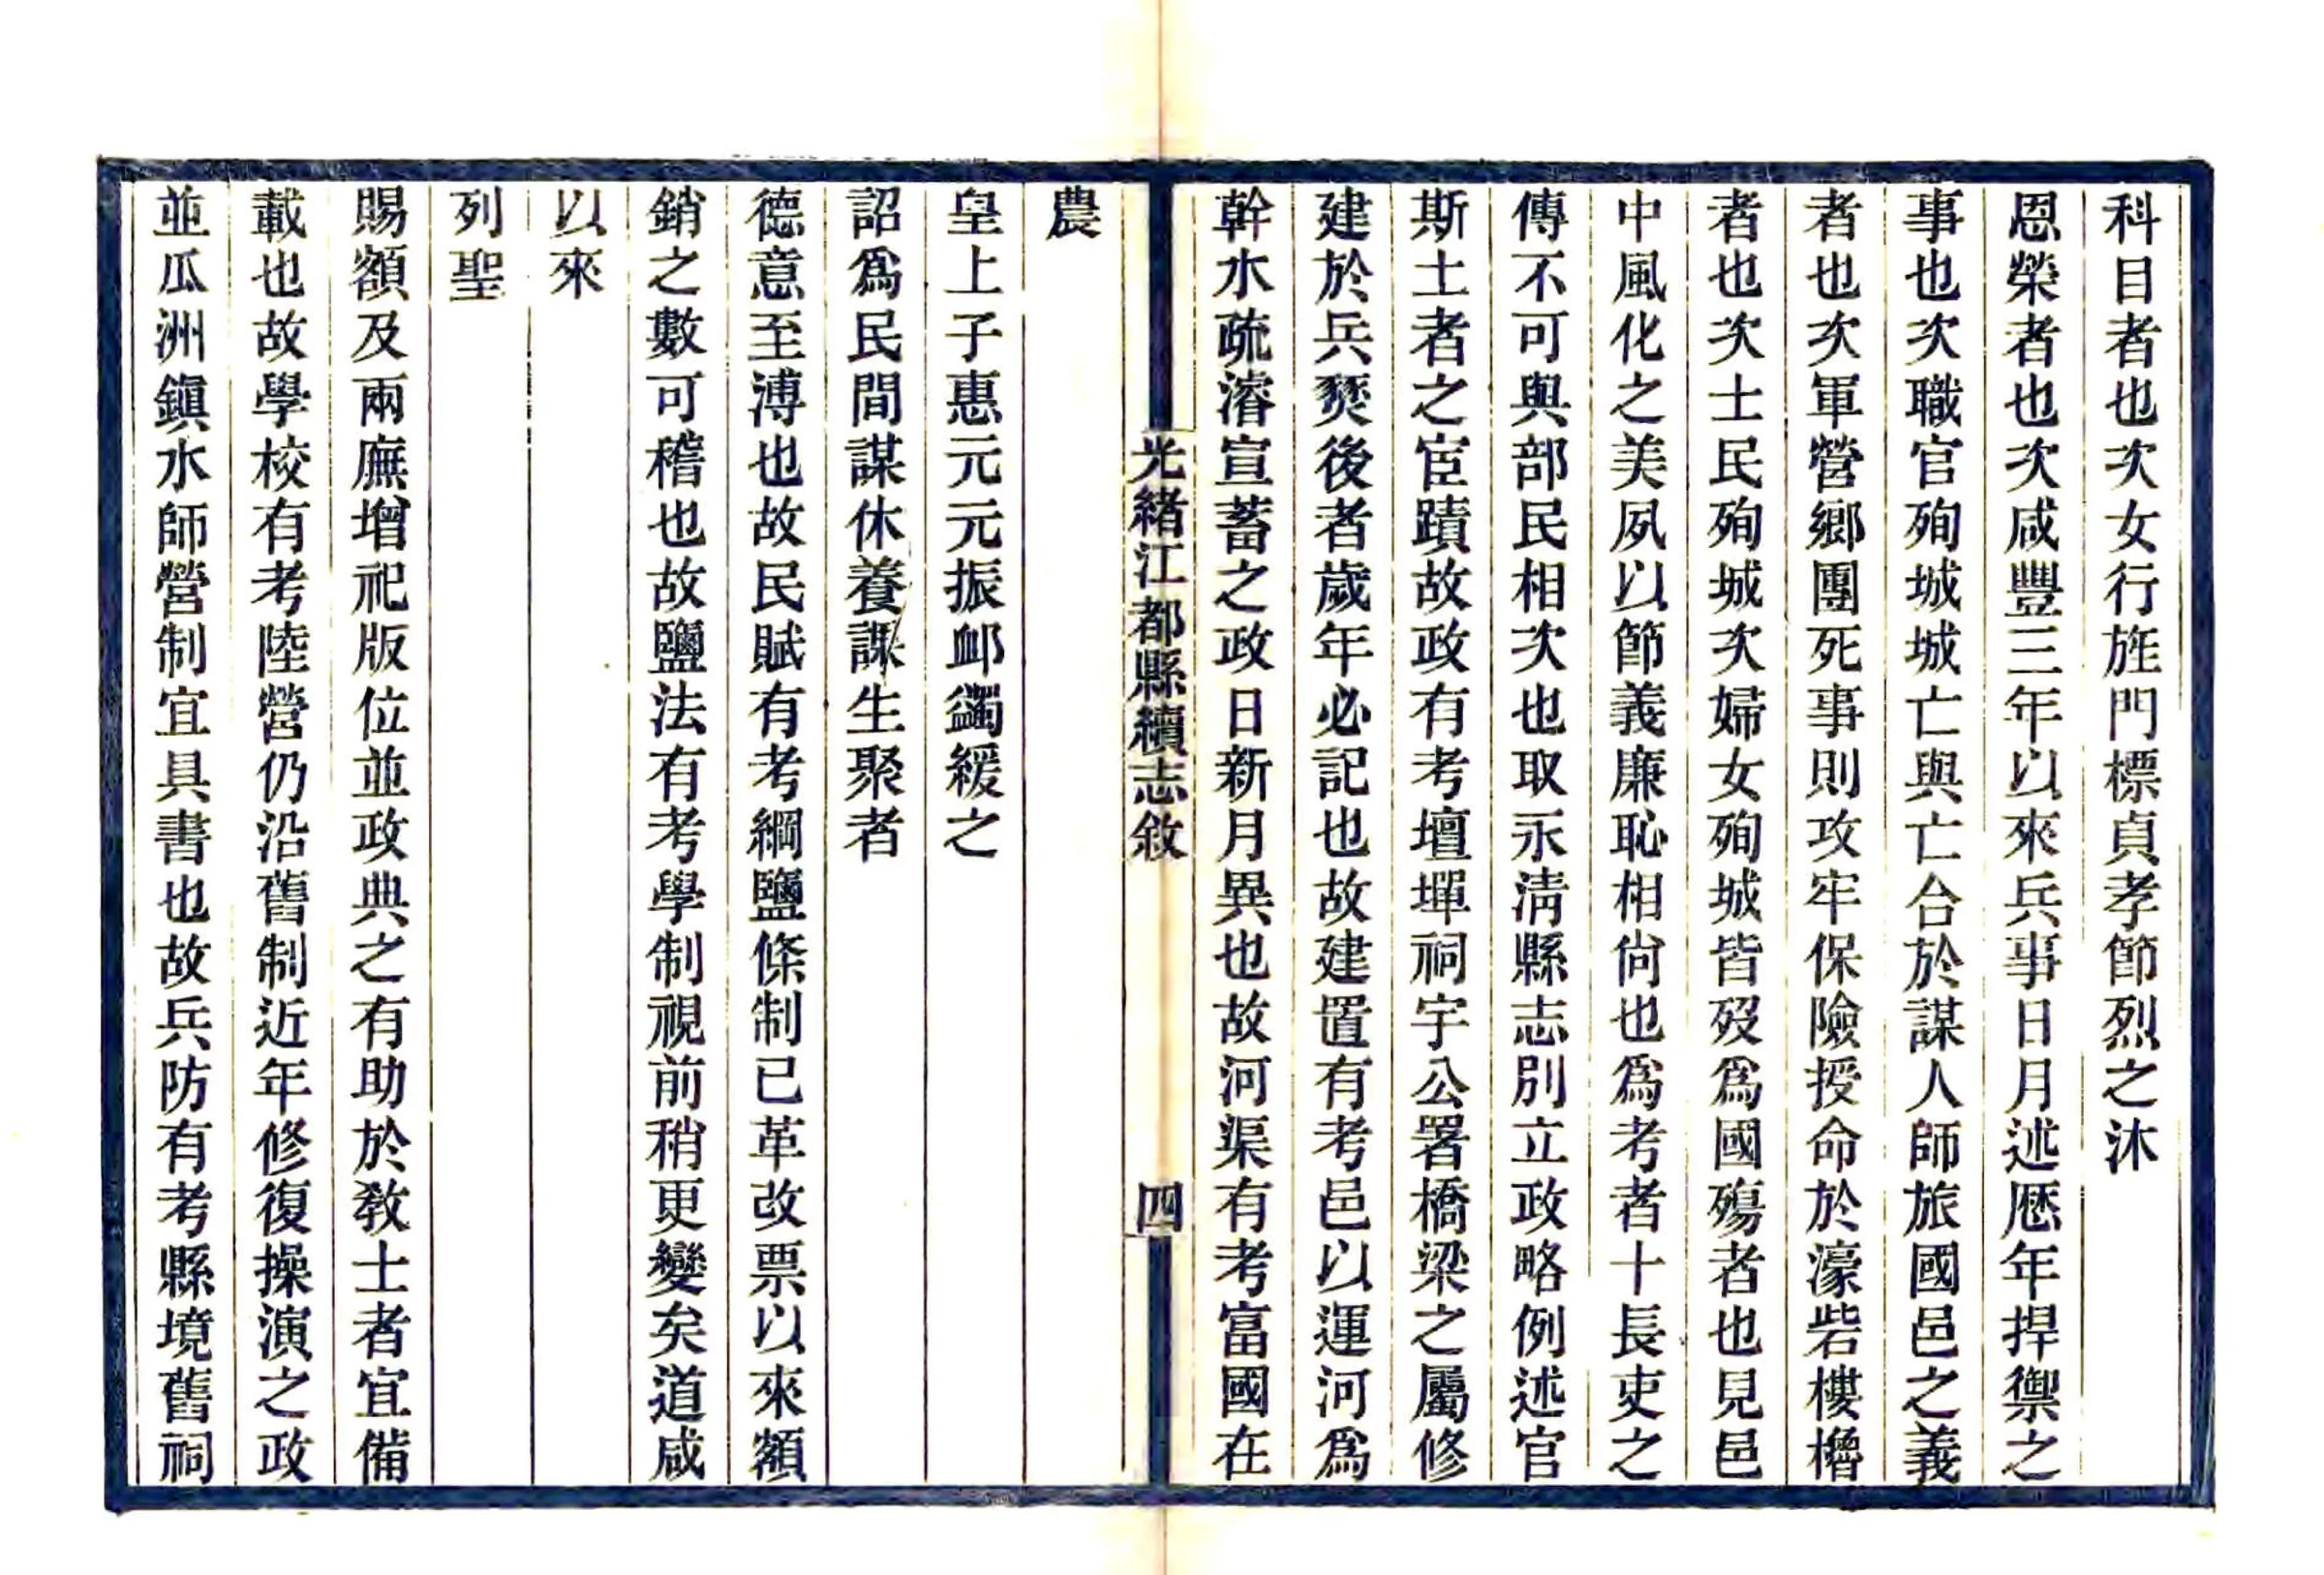 科目者也次女行旌門標貞孝節烈之沐
恩榮者也次咸豐三年以來兵事日月述厯年捍禦之
事也次職官殉城城亡與亡合於謀人師旅國邑之義
者也次軍營鄉團死事則攻牢保險授命於濠砦樓櫓
者也次士民殉城次婦女殉城皆歿爲國殤者也見邑
中風化之美夙以節義廉恥相尙也爲考者十長吏之
傳不可與部民相次也取永淸縣志別立政略例述官
斯土者之宦蹟故政有考壇墠祠宇公署橋梁之屬修
建於兵燹後者歲年必記也故建置有考邑以運河爲
幹水疏濬宣蓄之政日新月異也故河渠有考富國在
光緒江都縣續志敘
四
農
皇上子惠元元振卹蠲緩之
詔爲民間謀休養課生聚者
德意至溥也故民賦有考綱鹽條制已革改票以來額
銷之數可稽也故鹽法有考學制視前稍更變矣道咸
以來
列聖
賜額及兩廡增祀版位並政典之有助於敎士者宜備
載也故學校有考陸營仍沿舊制近年修復操演之政
並瓜洲鎭水師營制宜具書也故兵防有考縣境舊祠